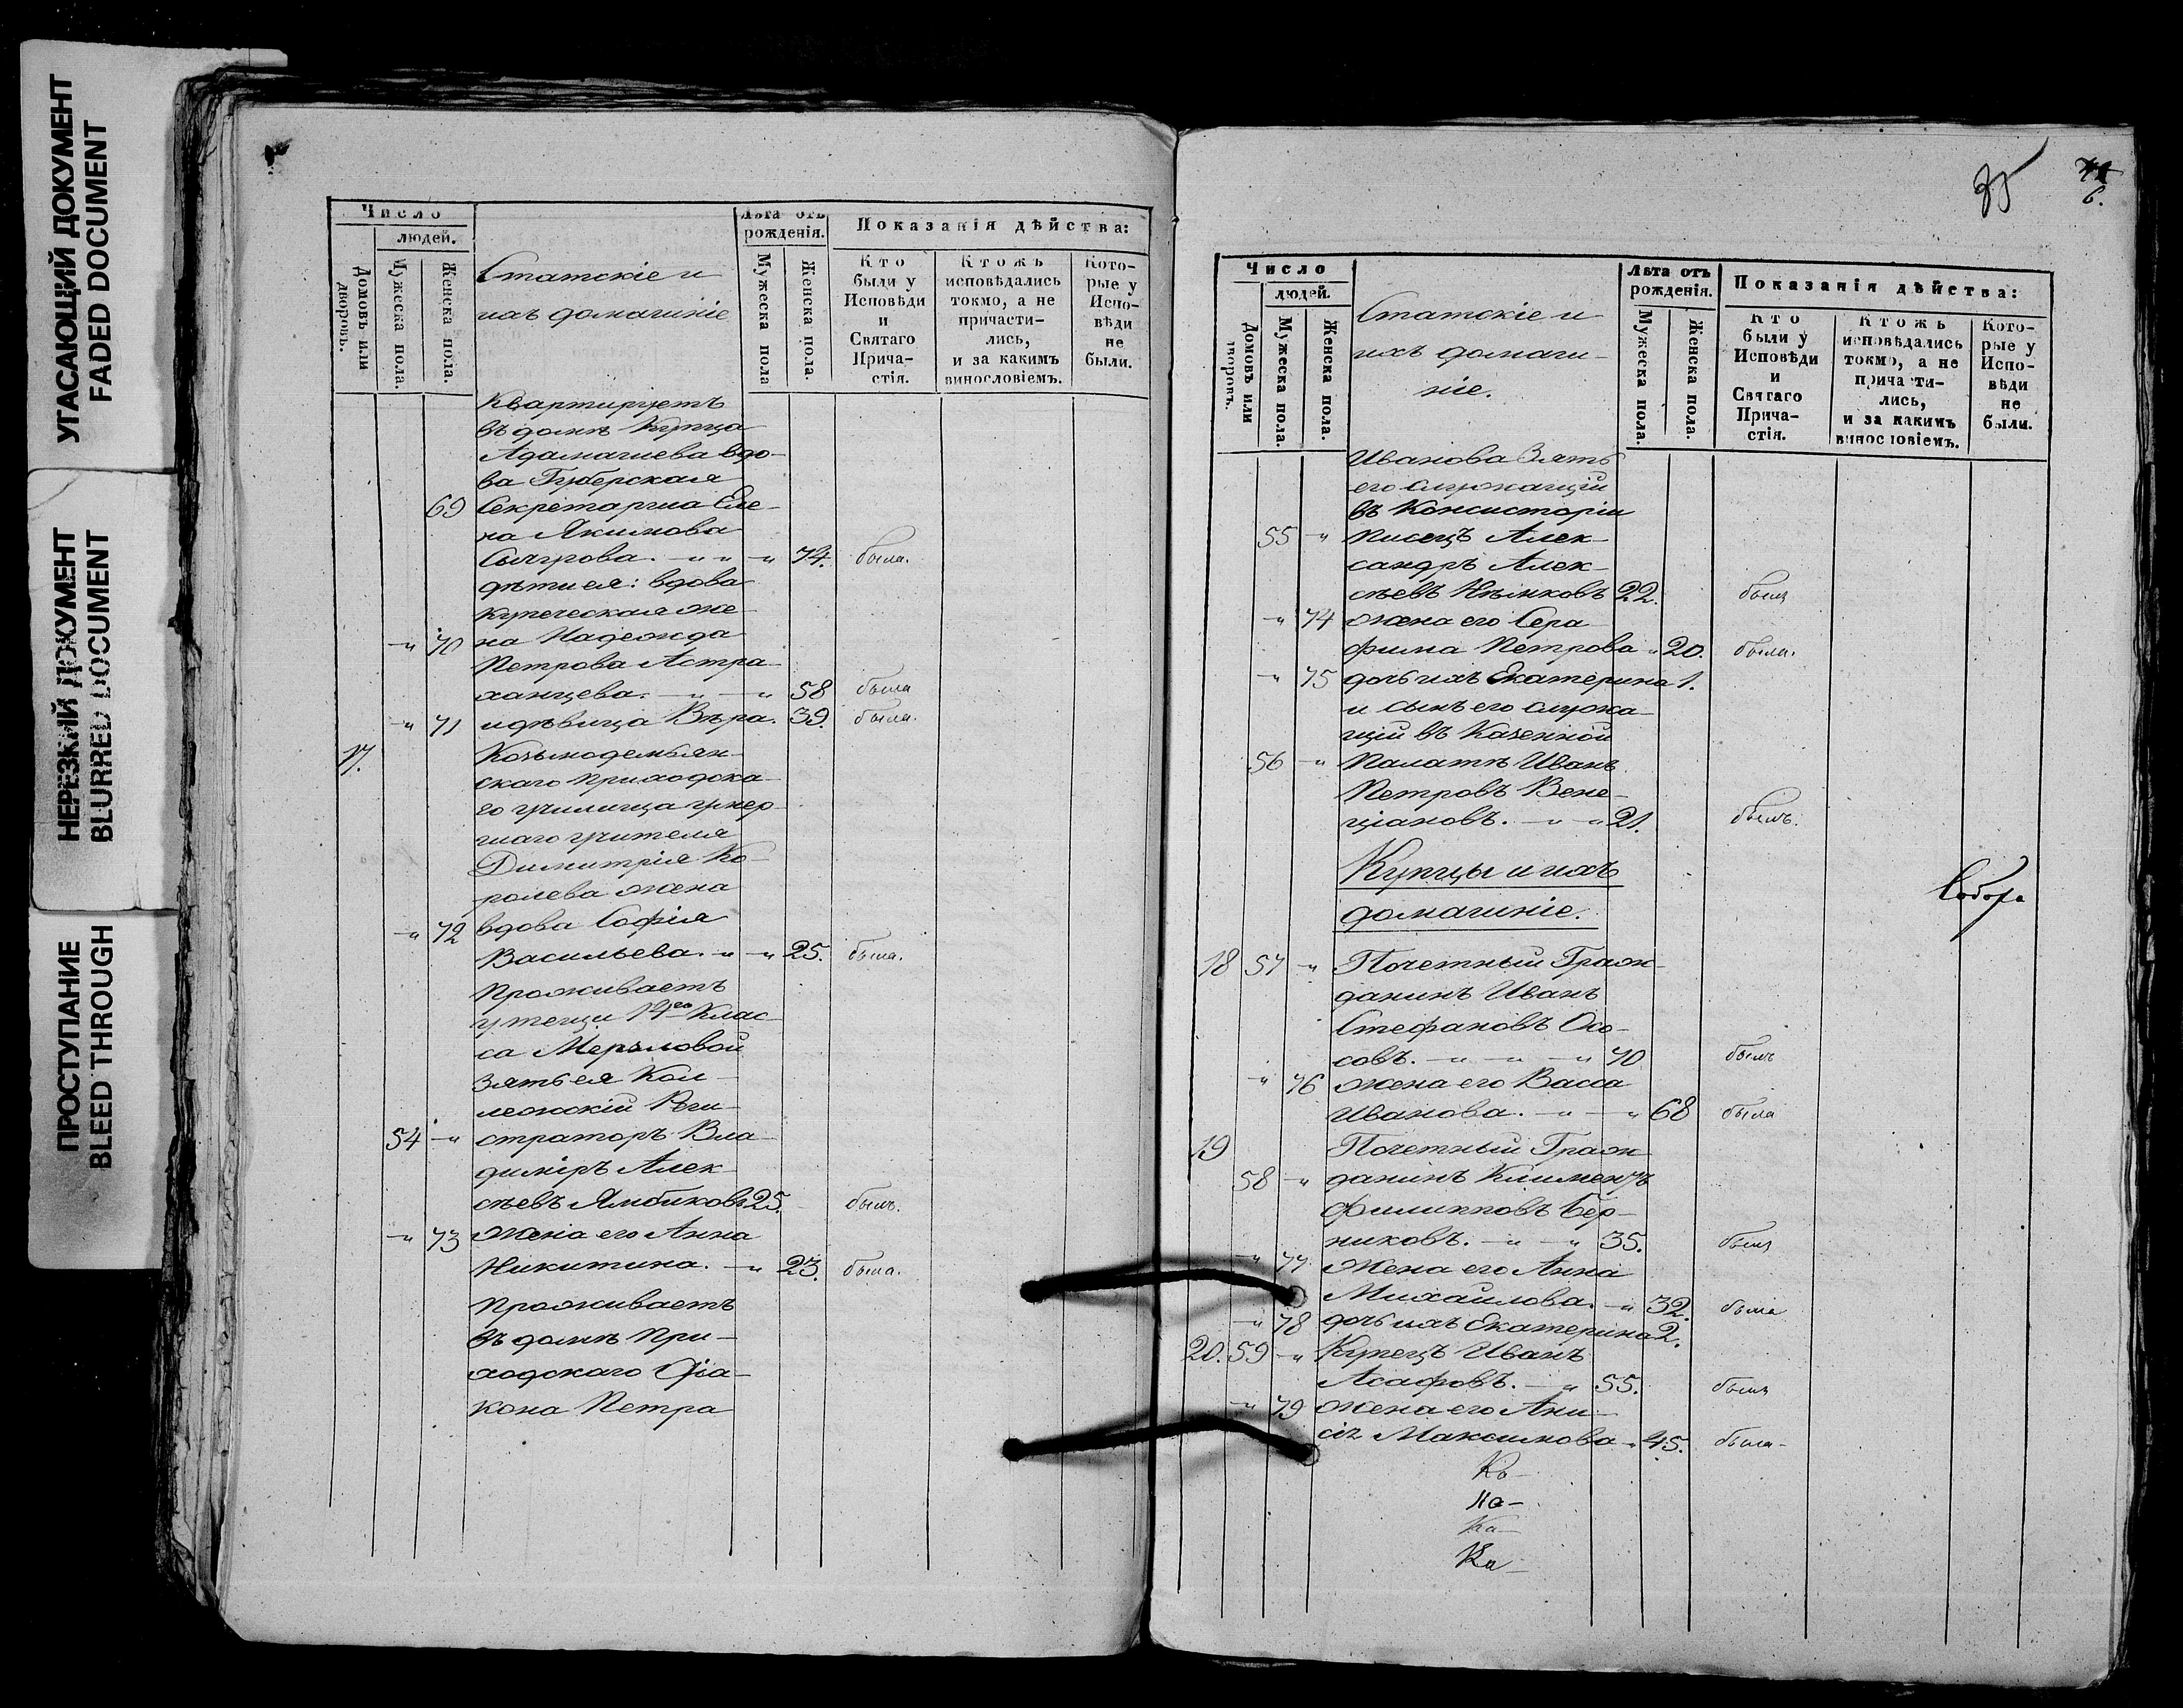 УГАСАЮЩИЙ ДОКУМЕНТ
FADED DOCUMENT
НЕРЕЗКИЙ ДОКУМЕНТ
BLURRED DOCUMENT
ПРОСТУПАНИЕ
BLEED THROUGH
Число
людей.
Домовъ или дворовъ.
Мужеска пола.
Женска пола.
Статскіе и
ихъ домашніе
Лѣта отъ
рожденія.
Мужеска пола
Женска пола.
Показанія дѣйства:
Кто
были у
Исповѣди
и
Святаго
Прича-
стія.
Ктожъ
исповѣдались
токмо, а не
причасти-
лись,
и за какимъ
винословіемъ.
Кото-
рые у
Испо-
вѣди
не
были.
Квартируетъ
въ домѣ Купца
Адамачева вдо-
ва Губерская
69 Секретарша Еле-
на Якимова
74. была.
дѣти ея: вдова
купеческая же-
" 70 на Надежда
Петрова Астра-
ханцева. " " 58 была
" 71 и дѣвица Вѣра. 39. была.
17. Козьмодемьян-
скаго приходска-
го училища умер-
шаго учителя
Димитрія Ко-
ролева жена
" 72 вдова Софія
Васильева. " " 25. была.
Проживаетъ
у тещи 14го Клас-
са Мерзловой
зять ея Кол-
лежскій Реги-
54 " страторъ Вла-
диміръ Алек-
сѣевъ Ямбиковъ 25. былъ.
" 73 жена его Анна
Никитина. " 23. была.
Проживаетъ
въ домѣ При-
ходскаго Діа-
кона Петра
35
6.
Число
людей.
Домовъ или дворовъ.
Мужеска пола.
Женска пола.
Статскіе и
ихъ домаш-
ніе.
Лѣта отъ
рожденія.
Мужеска пола.
Женска пола.
Показанія дѣйства:
Кто
были у
Исповѣди
и
Святаго
Прича-
стія.
Ктожъ
исповѣдались
токмо, а не
причасти-
лись,
и за какимъ
винословіемъ.
Кото-
рые у
Испо-
вѣди
не
были.
Иванова Зять
его служащій
въ Консисторіи
55 " Писецъ Алек-
сандръ Алек-
сѣевъ 22. былъ
" 74 жена его Сера-
фима Петрова " 20. была.
" 75 дочь ихъ Екатерина 1.
и сынъ его служа-
щій въ Казенной
56 " Палатѣ Иванъ
Петровъ Вене-
ціановъ. " " 21. былъ.
Купцы и ихъ
домашніе.
18 57 " Почетный Граж-
данинъ Иванъ
Стефановъ Осо-
совъ. " " " 70 былъ
" 76 жена его Васса
Иванова. " " 68 была
19 Почетный Граж-
58 " данинъ Климентъ
Филипповъ Бер-
никовъ. " " 35. былъ
" 77 жена его Анна
Михайлова. " 32. была
" 78 дочь ихъ Екатерина 2.
20. 59 " Купецъ Иванъ
Асафовъ. " 55. былъ
" 79 жена его Ани-
сія Максимова " 45. была
Ка-
Ка-
Ка-